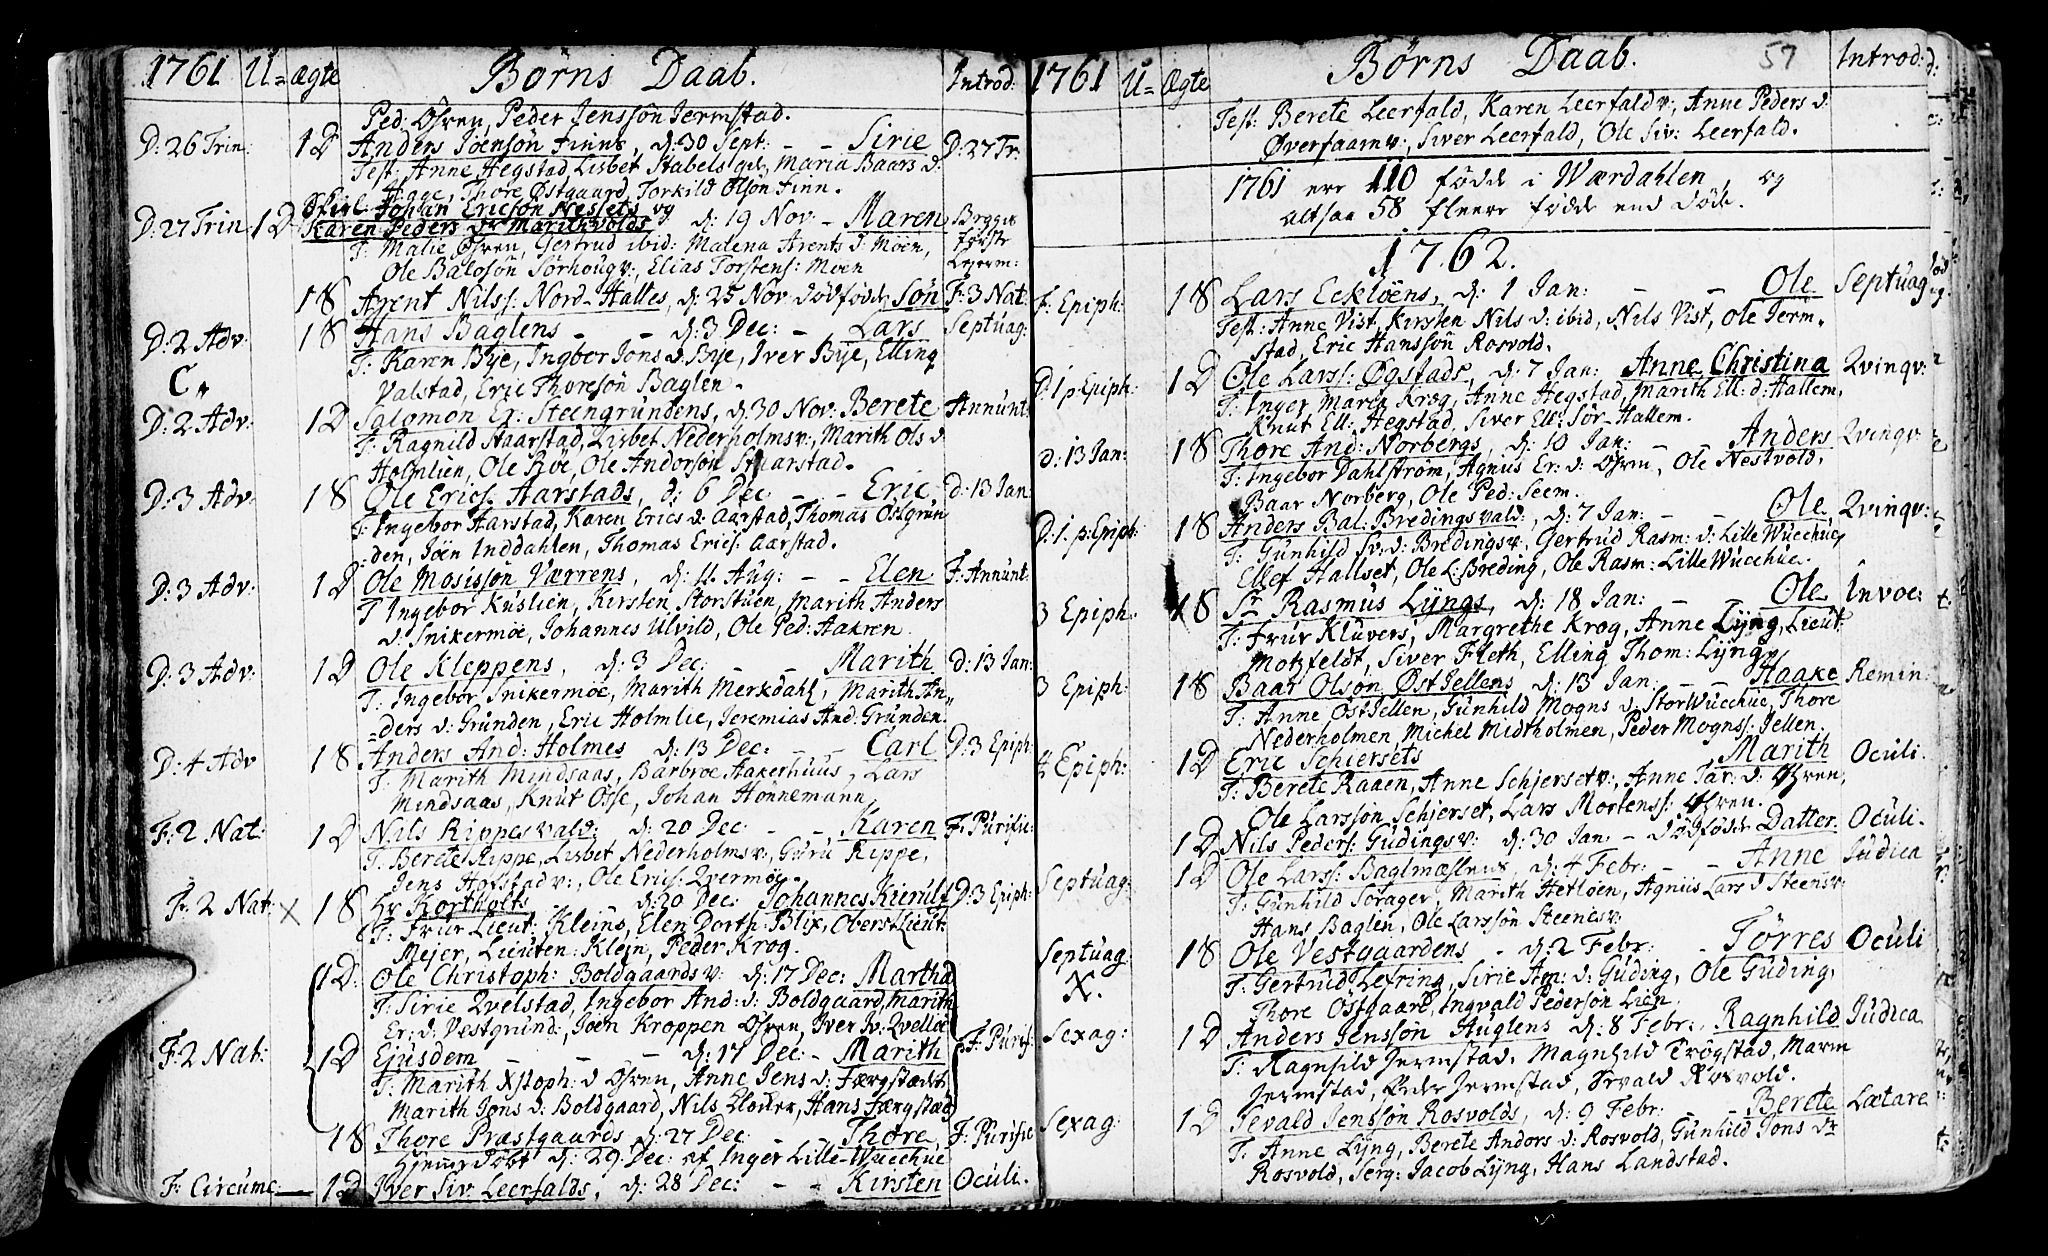 1761 U= Ægte Børns Daab. Introd:
Ped: Øsren, Peder Jenssön Jermstad.
D: 26 Trin: 1 D Anders Jöensön Finns, d: 30 Sept: - - Sirie D: 27 Tr:
Test: Anne Hegstad, Lisbet Stabels, Maria Baars d:
Hage, Thore Østgaard, Torkild Olson Finn.
D: 27 Trin: 1 D Johan Ericsön Nessets og
Karen Peders dr Marithvolds d: 19 Nov: - Maren Begges
første
Lejerm:
T: Malie Øsren, Gertrud ibid: Malena Arents d: Möen,
Ole Balgsön Sörhougv:, Elias Torstens: Möen
1 S Arent Nilss: Nord-Halles, d: 25 Nov: dödfödde Søn F: 3 Nat:
D: 2 Adv: 1 S Hans Baglens - - d: 3 Dec: - Lars Septuag:
T: Karen Bye, Ingbor Jons d: Bye, Iver Bye, Elling
Valstad, Eric Thoresön Baglen.
C,,
D: 2 Adv: 1 D Salomon Er: Steengrundens, d: 30 Nov: Berete Annunt:
T: Ragnild Staarstad, Lisbet Nederholmsv:, Marith Ols d:
Holmlien, Ole Röe, Ole Andersön Staarstad.
D: 3 Adv: 1 S Ole Erics: Aarstads, d: 6 Dec: - - Eric d: 13 Jan:
T: Ingebor Aarstad, Karen Erics d: Aarstad, Thomas Østgrun
=den, Jöen Inddahlen, Thomas Erics: Aarstad.
D: 3 Adv: 1 D Ole Mosissön Værrens, d: 11 Aug: - - Elen F: Annunt:
T: Ingebor Kuslien, Kirsten Storstuen, Marith Anders
d: Snikermöe, Johannes Ulvild, Ole Ped: Aakren.
D: 3 Adv: 1 D Ole Kleppens, d: 3 Dec: - - Marith d: 13 Jan:
T: Ingebor Snikermöe, Marith Merkdahl, Marith An=
=ders d: Grunden, Eric Holmlie, Jeremias And: Grunden.
D: 4 Adv 1 S Anders And: Holmes d: 13 Dec: - - Carl D: 3 Epiph:
T: Marith Mindsaas, Barbroe Aakerhuus, Lars
Mindsaas, Knut Osse, Johan Honnemann,
F: 2 Nat: 1 D Nils Rippesvald: d: 20 Dec: - - Karen F: Purific:
T: Berete Rippe, Lisbet Nederholmsv:, Guru Rippe,
Jens Hofstadv:, Ole Erics: Qvermoe.
F: 2 Nat: X 1 S Hr Kortholts - d: 20 Dec: Johannes Kierulf D: 3 Epiph:
T: Frur Lieut: Kleins, Elen Dorth: Blix, Oberst Lieut:
Mejer, Lieuten: Klein, Peder Krog.
1 D: Ole Christoph: Boldgaardsv: d: 17 Dec: Martha
T: Sirie Qvelstad, Ingebor And: d: Boldgaard, Marith
Er: d: Vestgrund:, Jöen Kroppen Øsren, Iver Iv: Qvelloe
F: 2 Nat: 1 D Ejusdem - - - d: 17 Dec: - Marith F: Purif:
T: Marith Xstoph: d Øsren, Anne Jens d: Færgstadt
Marith Jons d: Boldgaard, Nils Elother, Hans Færgstad
1 S Thore Præstgaards d: 27 Dec: - Thore F: Purific
hjemedöbt d: 29 Dec: af Inger Lille-Wucchue
F: Circumc: 1 D Iver Siv: Leerfalds, d: 28 Dec: - - Kirsten Oculi.
1761 U= Ægte Børns Daab. 57 Introd:
Test: Berete Leerfald, Karen Leerfaldv:, Anne Peders d:
Øverfaarnv:, Siver Leerfald, Ole Siv: Leerfald.
1761 ere 110 fødde i Wærdahlen, og
altsaa 58 fleere fødde end døde.
1762.
F: Epiph: 1 S Lars Ecklöens, d: 1 Jan: - - Ole Septuag
Test: Anne Vist, Kirsten Nils d: ibid, Nils Vist, Ole Jerm=
stad, Eric Hanssön Rosvold.
D: 1 p Epiph: 1 D Ole Larss: Øgstads, d: 7 Jan: Anne Christina Qvinqv:
T: Inger Maria Krog, Anne Hegstad, Marith Ell: d: Hallem,
Knut Ell: Hegstad, Siver Ell: Sör-Hallem.
d: 13 Jan: 1 S Thore And: Norbergs, d: 10 Jan: - - Anders Qvinqv:
T: Ingebor Dahlström, Agnus Er: d: Øsren, Ole Nestvold,
Baar Norberg, Ole Ped: Seem.
D: 1. p: Epiph: 1 S Anders Bal: Bredingsvald:, d: 7 Jan: - - Ole Qvinqv:
T: Gunhild Sv: d: Bredingsv:, Gertrud Rasm: d: Lille Wucchue,
Ellef Hallset, Ole L: Breding, Ole Rasm: Lille Wucchue.
3 Epiph: 1 S Sr Rasmus Lyngs, d: 18 Jan: - - Ole Invoc:
T: Frur Kluvers, Margrethe Krog, Anne Lyng, Lieut:
Motzfeldt, Siver Fleth, Elling Thom: Lyng
3 Epiph: 1 S Baar Olsön Øst Jellens d: 13 Jan: - - Haake Remin:
T: Anne Ost Jellen, Gunhild Mogns d: Stor Wucchue, Thore
Nederholmen, Michel Midtholmen, Peder Mognss: Jellen.
4 Epiph: 1 D Eric Schjersets Marith Oculi.
T: Berete Raaen, Anne Schjersetv:, Anne Tar: d: Øsren,
Ole Larssön Schjerset, Lars Mortenss: Øsren.
1 D Nils Peders: Gudingsv: d: 30 Jan: - dödfödde Datter: Oculi.
Septuag: 1 D Ole Larss: Baglmaslens, d: 4 Febr: - - Anne Judica
T: Gunhild Sorager, Marith Hetloen, Agnus Lars d Steensv:
Hans Baglen, Ole Larssön Steenesv:
Septuag: 1 S Ole Vestgaardens - d: 2 Febr: - Törres Oculi
X.
T: Gertrud Lefring, Sirie Am: d: Guding, Ole Guding,
Thore Ostgaard, Ingvald Pedersön Lien.
Sexag: 1 D Anders Jenssön Kuglens d: 8 Febr: Ragnhild Judica
T: Ragnhild Jermstad, Magnhild Trögstad, Maren
Jermstad, Peder Jermstad, Sevald Rosvold.
Sexag: 1 D Sevald Jenssön Rosvolds, d: 9 Febr: - Berete Lætare
T: Anne Lyng, Berete Anders d: Rosvold, Gunhild Jons dr
Rosvold, Serg: Jacob Lyng, Hans Landstad.